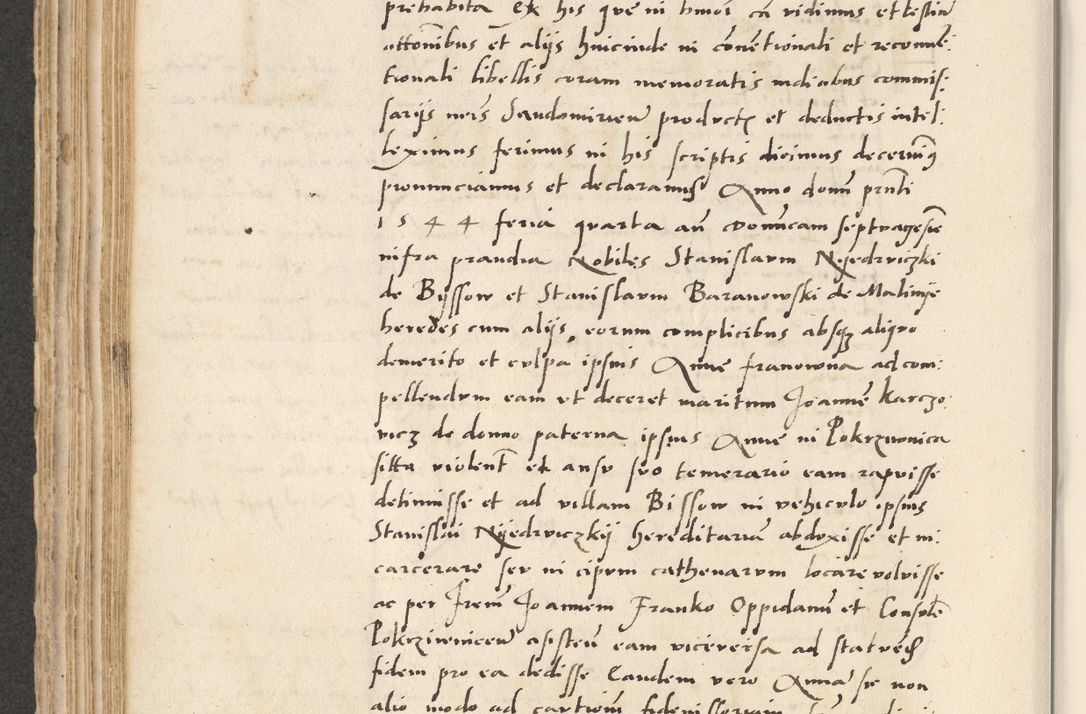 prehabita Ex his que in hmoi ca vidimus et testim
attonibus et alijs hincinde in conventionali et reconve:
tionali libellis coram memoratis iudicibus commis:
sarijs nris Sandomirien productis et deductis intel:
leximus ferimus in his scriptis dicimus decernimq
pronunciamus et declaramus Anno domi prnti
1544 feria quarta an dominicam septuagesie
infra prandia Nobiles Stanislaum Nyedrviczki
de Byssow et Stanislaum Baranowski de Malinye
heredes cum alijs eorum complicibus absqz aliquo
demerito et culpa ipsius Anne franowna ad com:
pellendum eam ut deceret maritum Joanne Karczo:
vicz de domo paterna ipsius Anne in Pokrzywnica
sitta violent et ausu suo temerario eam rapuisse
detinuisse et ad villam Bissow in vehiculo ipsius
Stanislai Nyedrviczkij hereditaria abduxisse et in:
carcerare seu in cipum cathenarum locare voluisse
ac per frem Joannem Franko Oppidanu et Consule
Pokrziwnicen asisten eam viceversa ad statuend
fidem pro ea dedisse Eandem vero Anna se non
alio modo ad cartiom fideiussoriam